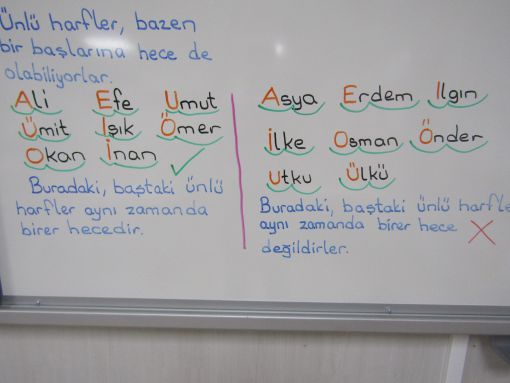 Ünlü harfler, bazen
bir başlarına hece de
olabiliyorlar.
Ali Efe Umut
Ümit Işık Ömer
Okan İnan
Buradaki, baştaki ünlü
harfler aynı zamanda
birer hecedir.
Asya Erdem Ilgın
İlke Osman Önder
Utku Ülkü
Buradaki, baştaki ünlü harfle
aynı zamanda birer hece
değildirler.